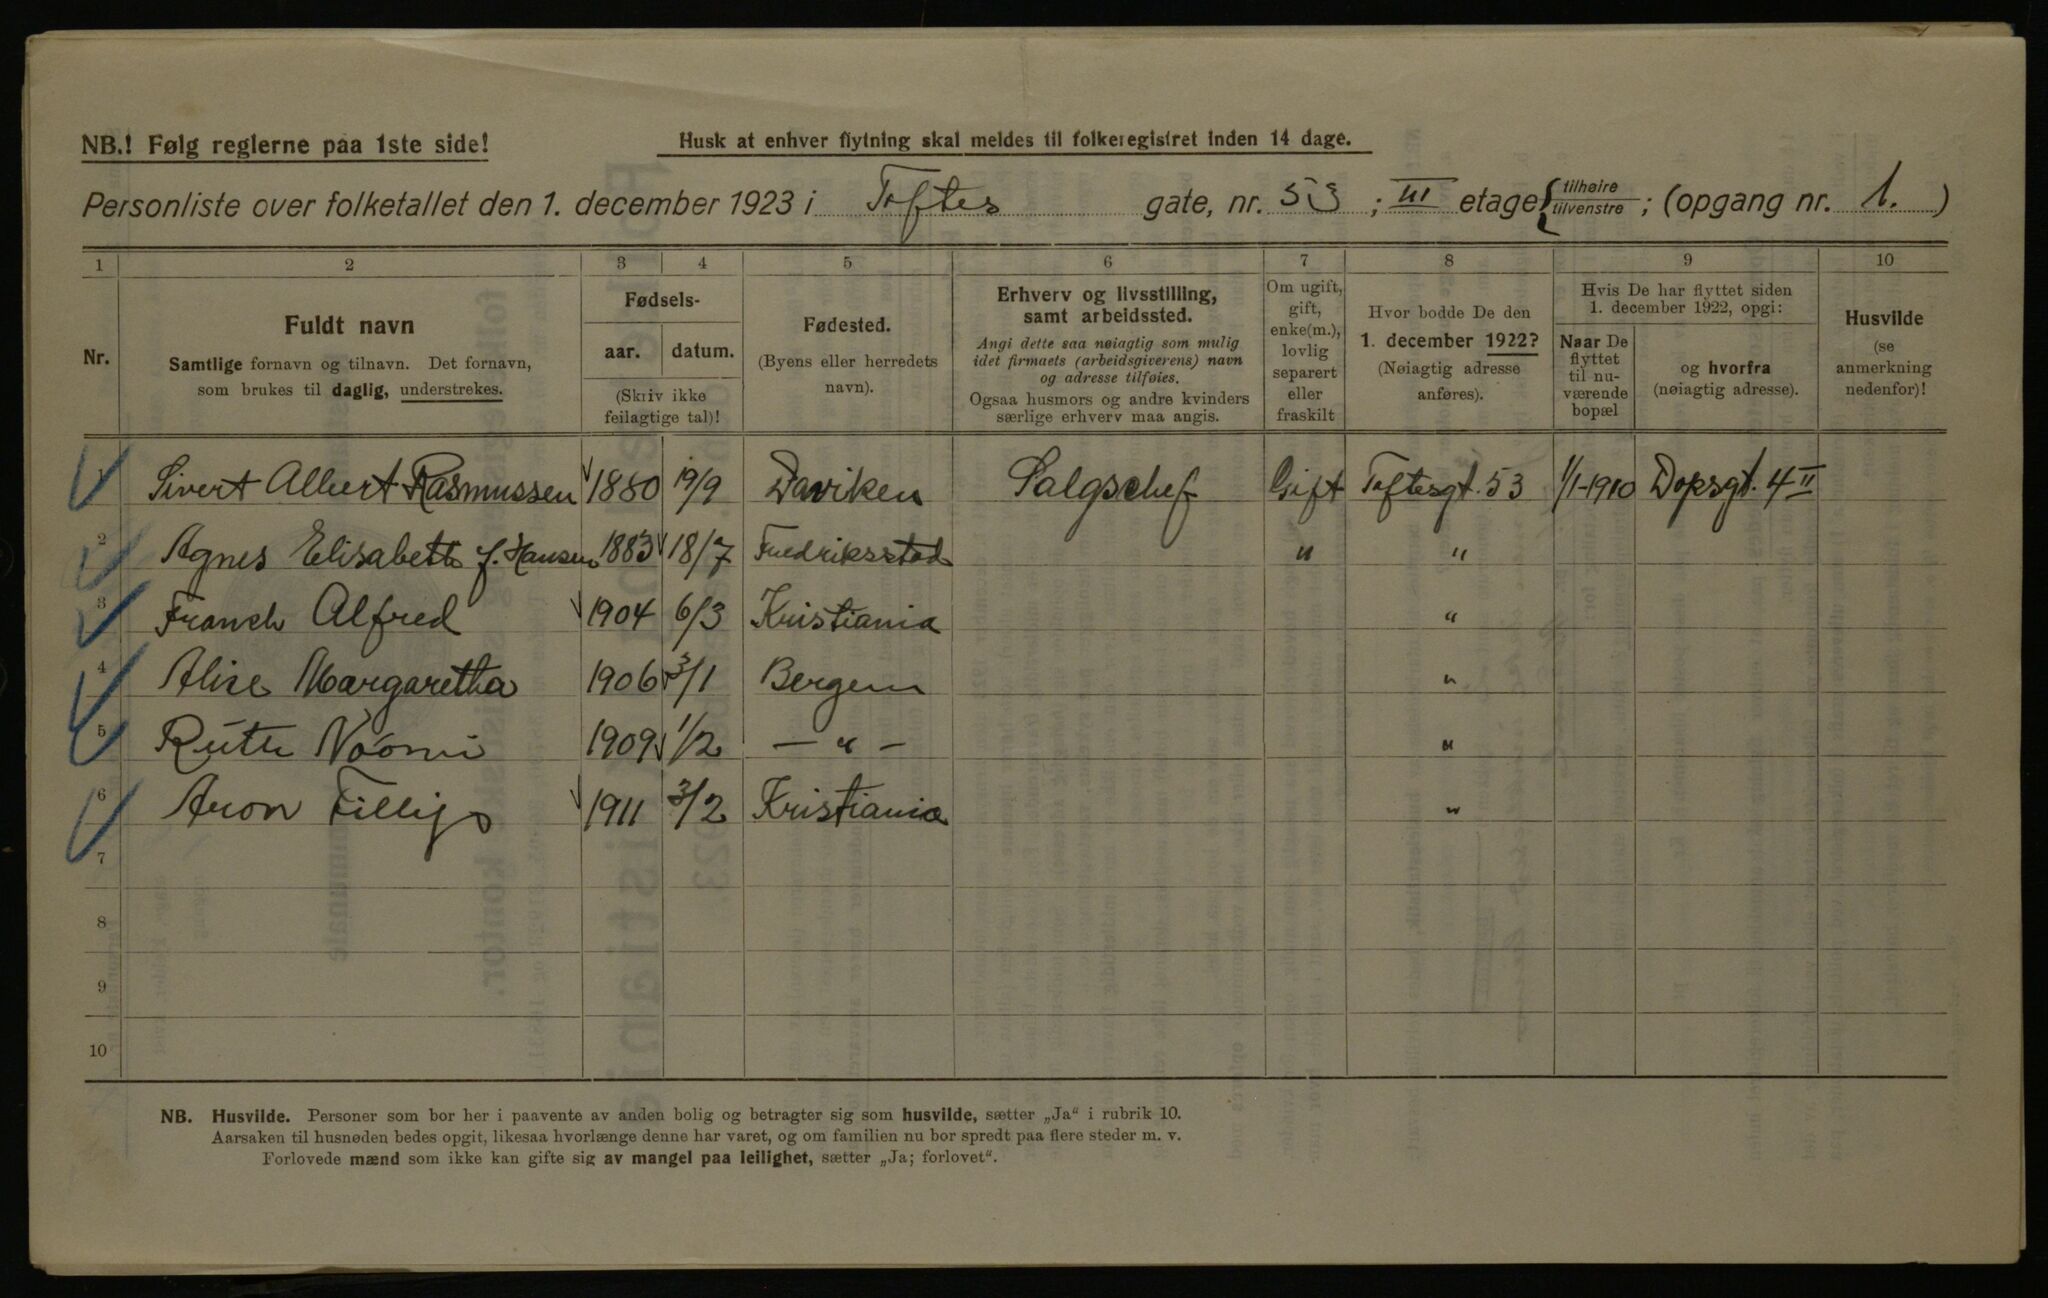 NB.! Følg reglerne paa 1ste side!
Husk at enhver flytning skal meldes til folkeregistret inden 14 dage.
Personliste over folketallet den 1. december 1923 i Toftes gate, nr. 53 ; III etage { tilhøire tilvenstre ; (opgang nr. 1. )
1 2 3 4 5 6 7 8 9 10
Nr.
Fuldt navn
Samtlige fornavn og tilnavn. Det fornavn,
som brukes til daglig, understrekes.
Fødsels-
aar. datum.
(Skriv ikke
feilagtige tal)!
Fødested.
(Byens eller herredets
navn).
Erhverv og livsstilling,
samt arbeidssted.
Angi dette saa nøiagtig som mulig
idet firmaets (arbeidsgiverens) navn
og adresse tilføies.
Ogsaa husmors og andre kvinders
særlige erhverv maa angis.
Om ugift,
gift,
enke(m.),
lovlig
separert
eller
fraskilt
Hvor bodde De den
1. december 1922?
(Nøiagtig adresse
anføres).
Hvis De har flyttet siden
1. december 1922, opgi:
Naar De
flyttet
til nu-
værende
bopæl
og hvorfra
(nøiagtig adresse).
Husvilde
(se
anmerkning
nedenfor)!
1 Sivert Albert Rasmussen 1880 19/9 Daviken Salgschef Gift Toftesgt. 53 1/1-1910 Dopsgt. 4 II
2 Agnes Elisabeth f. Hansen 1883 18/7 Fredriksstad " "
3 Franch Alfred 1904 6/3 Kristiania "
4 Alise Margaretha 1906 3/1 Bergen "
5 Ruth Noomi 1909 1/2 — " — "
6 Aron 1911 3/2 Kristiania "
7
8
9
10
NB. Husvilde. Personer som bor her i paavente av anden bolig og betragter sig som husvilde, sætter „Ja" i rubrik 10.
Aarsaken til husnøden bedes opgit, likesaa hvorlænge denne har varet, og om familien nu bor spredt paa flere steder m. v.
Forlovede mænd som ikke kan gifte sig av mangel paa leilighet, sætter „Ja; forlovet".